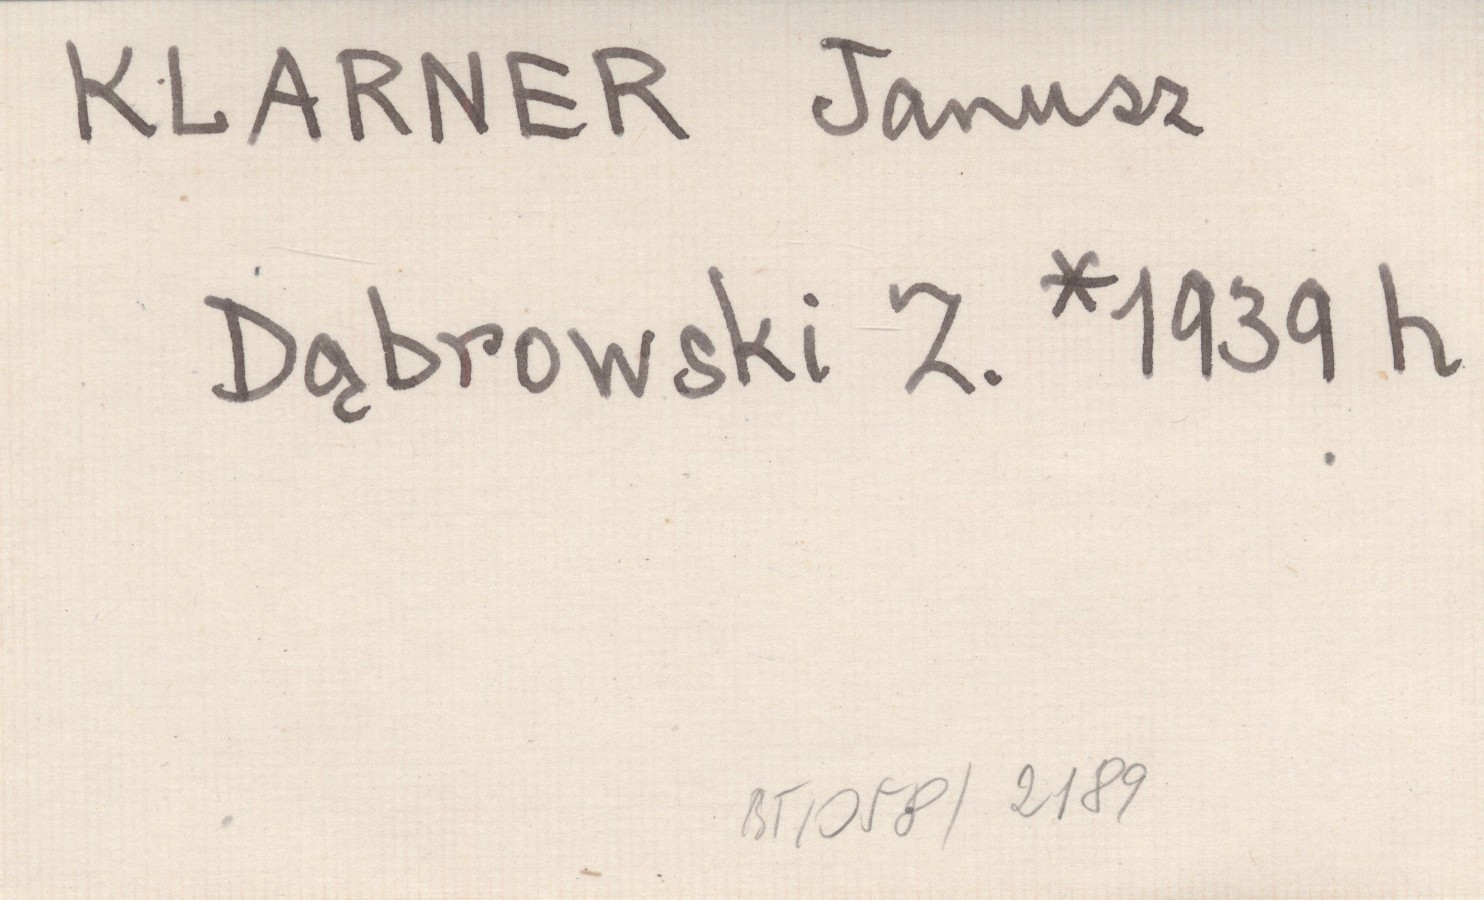 KLARNER Janusz
Dąbrowski Z. *1939 h
BT/058/2189